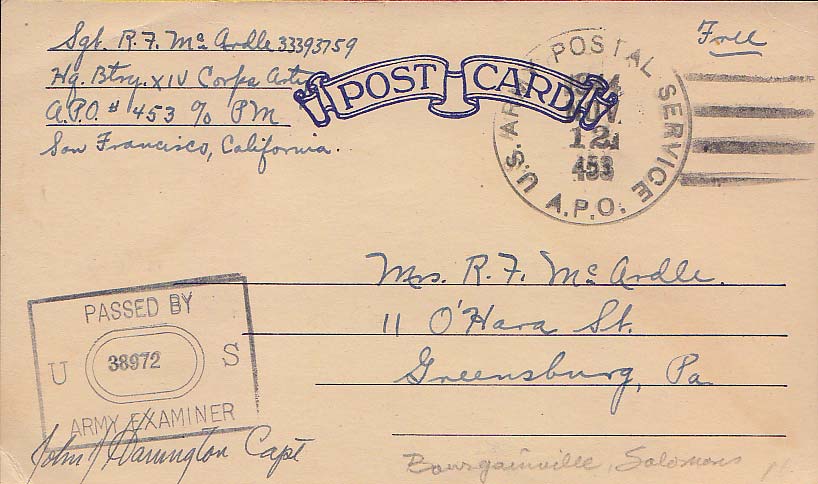 Sgt. R. F. Mc Ardle 33393759
Hq. Btry. XIV Corps Arty
A.P.O. # 453 % PM
San Francisco, California.
POST CARD
Free
U.S. ARMY POSTAL SERVICE
12
453
A.P.O.
Mrs. R. F. Mc Ardle.
11 O'Hara St.
Greensburg, Pa.
PASSED BY
U 38972 S
ARMY EXAMINER
John Capt
Bourgainville, Solomons